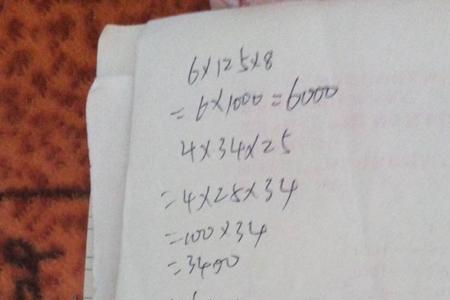 6×125×8
=6×1000=6000
4×34×25
=4×25×34
=100×34
=3400